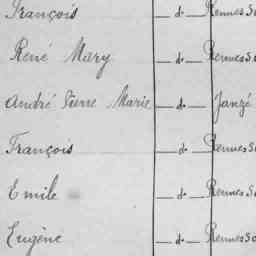 François — d. — Rennes So
René Mary — d. — Rennes So
André Pierre Marie — d. — Janzé
François — d. — Rennes So
Emile — d. — Rennes So
Eugène — d. — Rennes So